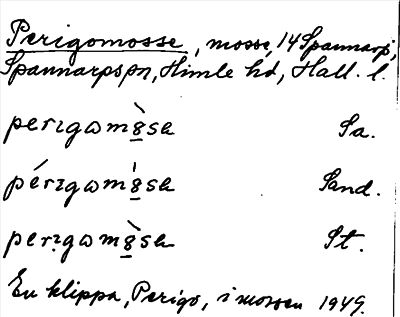 Perigomosse, mosse, 14 Spannarp,
Spannarps sn, Himle hd, Hall. l.
perɪgωm8̀sα Sa.
pérɪgωm8̀sα Sand.
perɪgωm8̀sα St.
En klippa, Perigo, i mossen 1949.